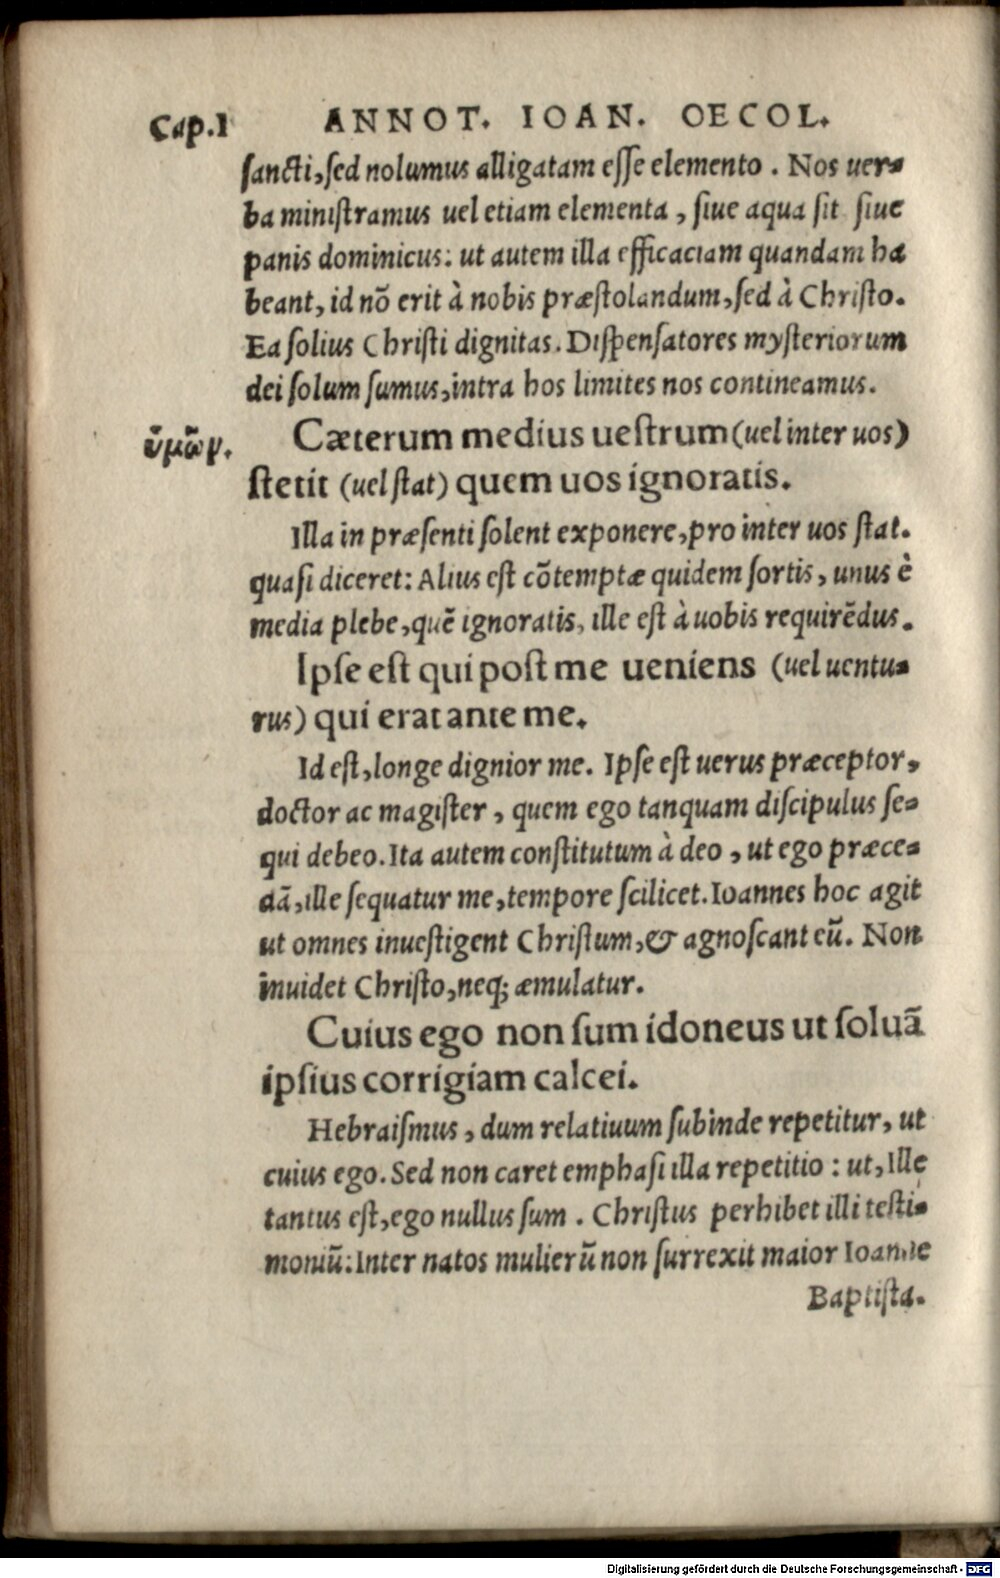 Cap.I ANNOT. IOAN. OECOL.
ſancti, ſed nolumus alligatam eſſe elemento. Nos uer-
ba miniſtramus uel etiam elementa, ſiue aqua ſit ſiue
panis dominicus: ut autem illa efficaciam quandam ha
beant, id nō erit à nobis præſtolandum, ſed à Chriſto.
Ea ſolius Chriſti dignitas. Diſpenſatores myſteriorum
dei ſolum ſumus, intra hos limites nos contineamus.
ὑμῶν. Cæterum medius ueſtrum (uel inter uos)
ſtetit (uel ſtat) quem uos ignoratis.
Illa in præſenti ſolent exponere, pro inter uos ſtat.
quaſi diceret: Alius eſt cōtemptæ quidem ſortis, unus è
media plebe, quē ignoratis, ille eſt à uobis requirēdus.
Ipſe eſt qui poſt me ueniens (uel uentu-
rus) qui erat ante me.
Id eſt, longe dignior me. Ipſe eſt uerus præceptor,
doctor ac magiſter, quem ego tanquam diſcipulus ſe-
qui debeo. Ita autem conſtitutum à deo, ut ego præce-
dā, ille ſequatur me, tempore ſcilicet. Ioannes hoc agit
ut omnes inueſtigent Chriſtum, & agnoſcant eū. Non
inuidet Chriſto, neq; æmulatur.
Cuius ego non ſum idoneus ut ſoluā
ipſius corrigiam calcei.
Hebraiſmus, dum relatiuum ſubinde repetitur, ut
cuius ego. Sed non caret emphaſi illa repetitio: ut, Ille
tantus eſt, ego nullus ſum. Chriſtus perhibet illi teſti-
moniū: Inter natos mulierū non ſurrexit maior Ioanne
Baptiſta.
Digitalisierung gefördert durch die Deutsche Forschungsgemeinschaft - DFG